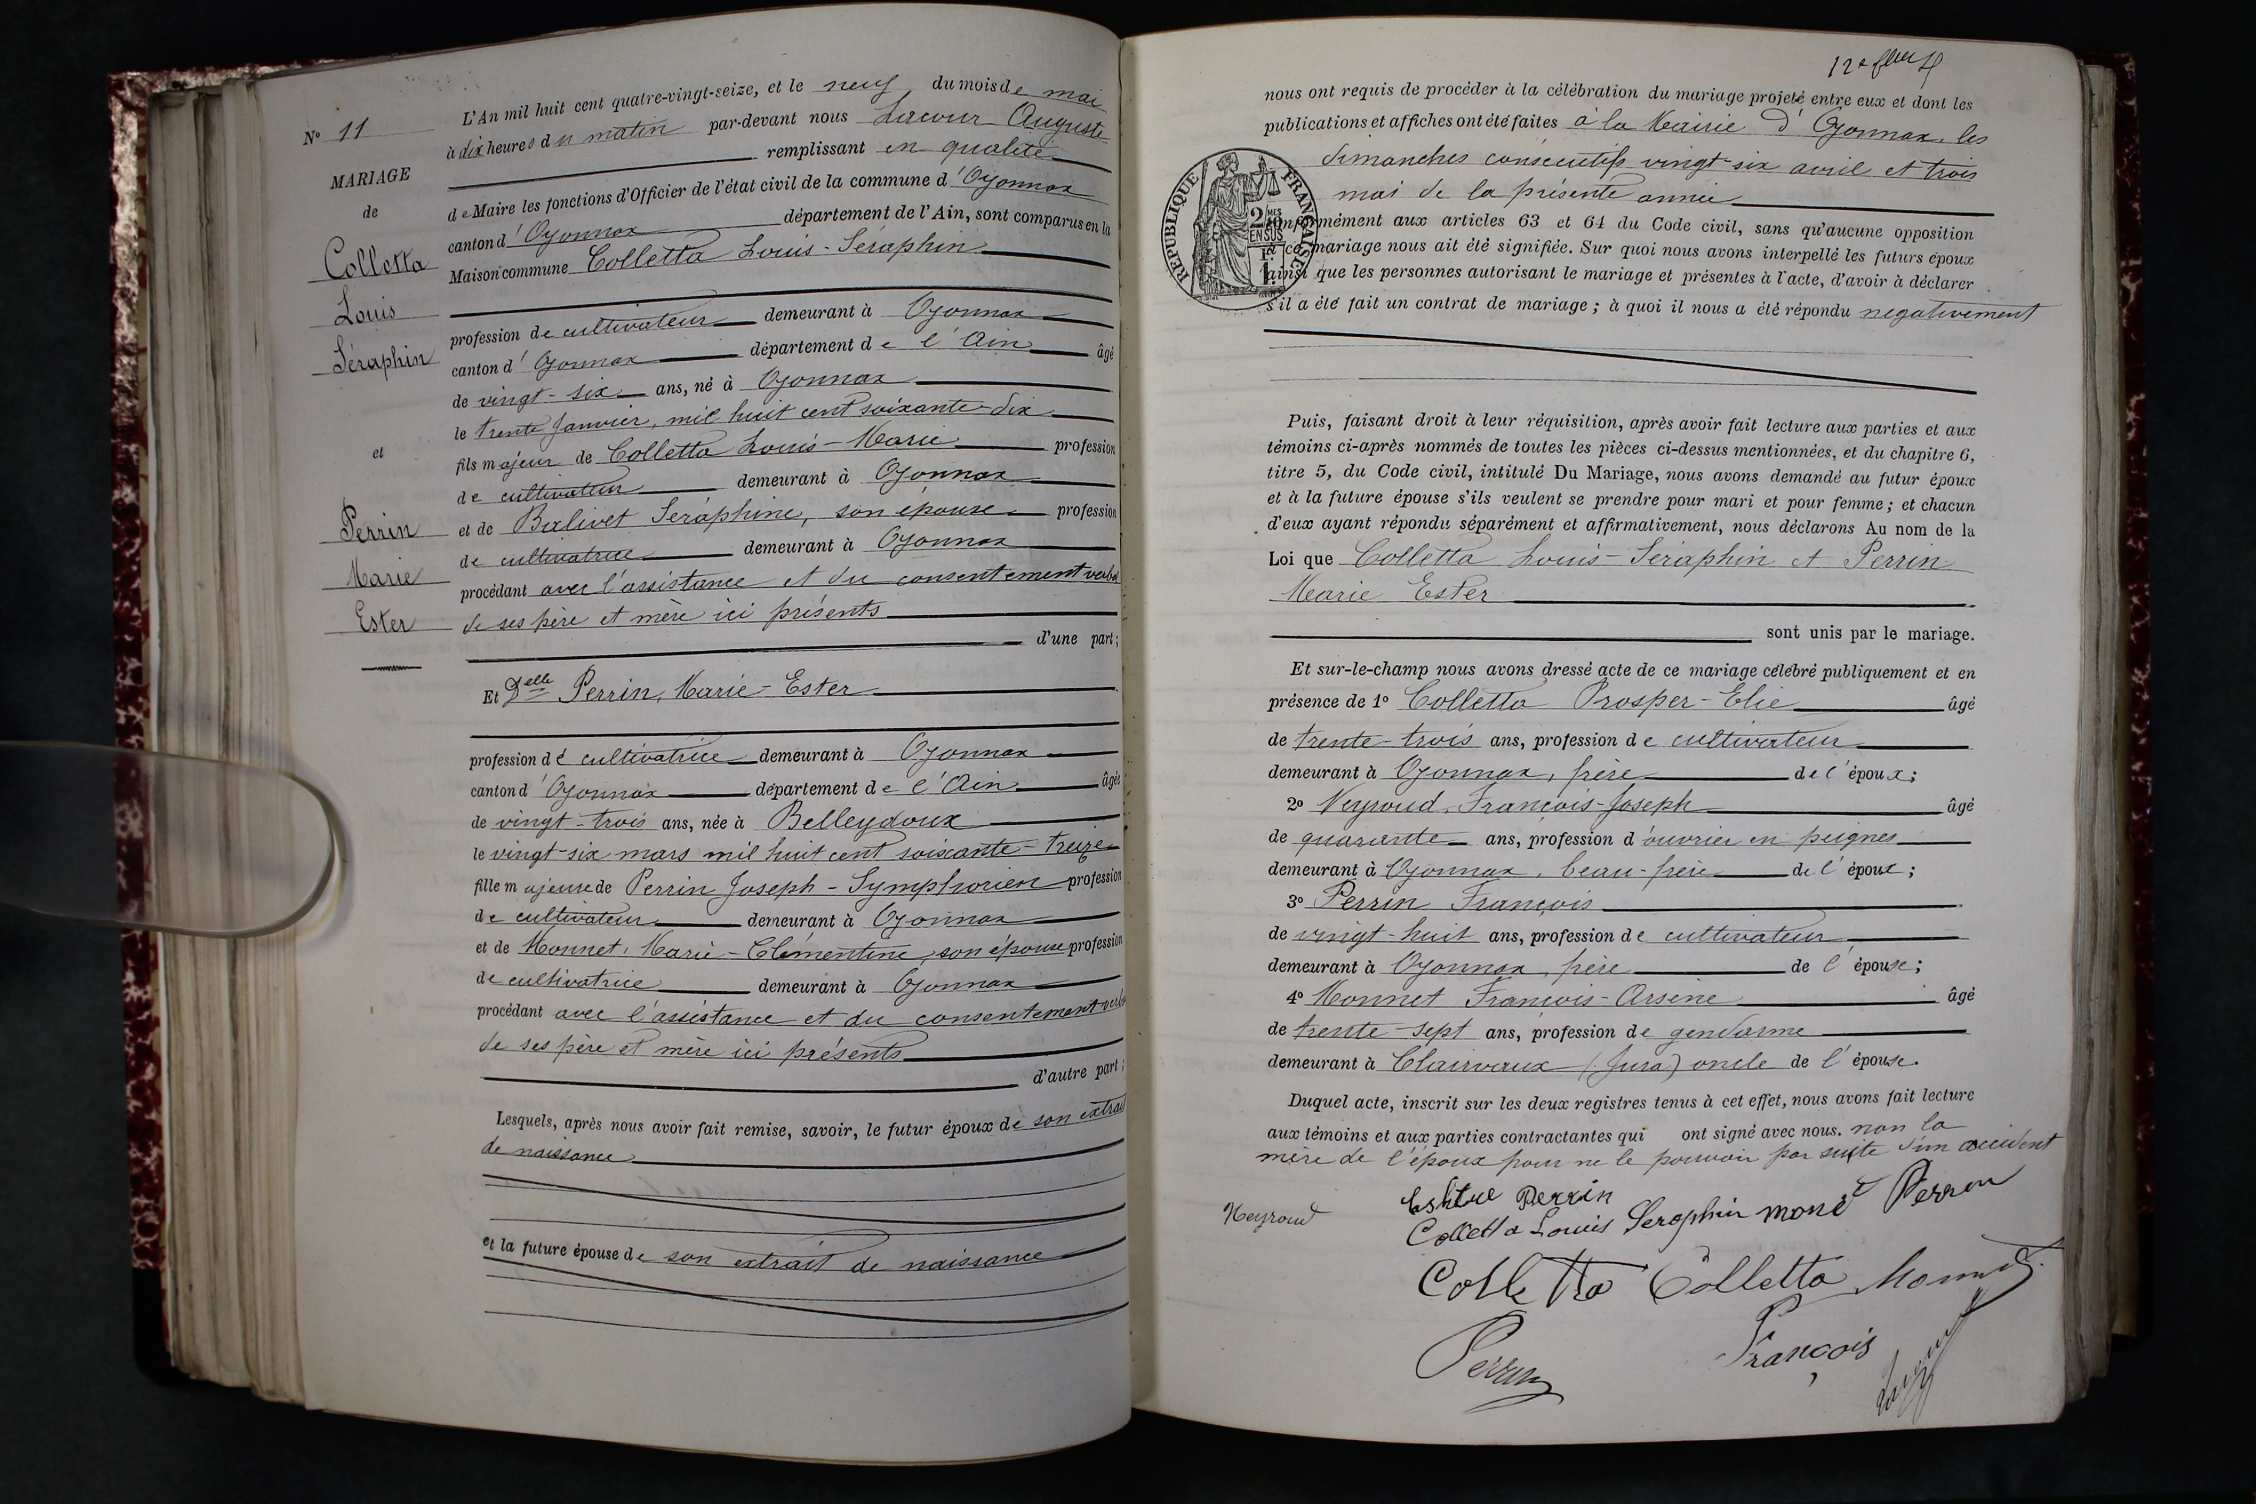 N° 11
MARIAGE
de
Colletta
Louis
Séraphin
et
Perrin
Marie
Ester
L'An mil huit cent quatre-vingt-seize, et le neuf du mois de mai
à dix heures du matin par-devant nous Lacour Auguste
remplissant en qualité
de Maire les fonctions d'Officier de l'état civil de la commune d'Oyonnax
canton d'Oyonnax département de l'Ain, sont comparus en la
Maison commune Colletta Louis-Séraphin
profession de cultivateur demeurant à Oyonnax
canton d'Oyonnax département de l'Ain âgé
de vingt-six ans, né à Oyonnax
le trente Janvier, mil huit cent soixante-dix
fils majeur de Colletta Louis-Marie profession
de cultivateur demeurant à Oyonnax
et de Berlivet Séraphine, son épouse profession
de cultivatrice demeurant à Oyonnax
procédant avec l'assistance et du consentement verbal
de ses père et mère ici présents
d'une part;
Et Delle Perrin, Marie-Ester
profession de cultivatrice demeurant à Oyonnax
canton d'Oyonnax département de l'Ain âgée
de vingt-trois ans, née à Belleydoux
le vingt-six mars mil huit cent soixante-treize
fille majeure de Perrin Joseph-Symphorien profession
de cultivateur demeurant à Oyonnax
et de Monnet, Marie-Clémentine, son épouse profession
de cultivatrice demeurant à Oyonnax
procédant avec l'assistance et du consentement verbal
de ses père et mère ici présents
d'autre part;
Lesquels, après nous avoir fait remise, savoir, le futur époux de son extrait
de naissance
et la future épouse de son extrait de naissance
nous ont requis de procéder à la célébration du mariage projeté entre eux et dont les
publications et affiches ont été faites à la Mairie d'Oyonnax, les
dimanches consécutifs vingt-six avril et trois
mai de la présente année
RÉPUBLIQUE FRANÇAISE
conformément aux articles 63 et 64 du Code civil, sans qu'aucune opposition
à ce mariage nous ait été signifiée. Sur quoi nous avons interpellé les futurs époux
ainsi que les personnes autorisant le mariage et présentes à l'acte, d'avoir à déclarer
s'il a été fait un contrat de mariage; à quoi il nous a été répondu negativement
Puis, faisant droit à leur réquisition, après avoir fait lecture aux parties et aux
témoins ci-après nommés de toutes les pièces ci-dessus mentionnées, et du chapitre 6,
titre 5, du Code civil, intitulé Du Mariage, nous avons demandé au futur époux
et à la future épouse s'ils veulent se prendre pour mari et pour femme; et chacun
d'eux ayant répondu séparément et affirmativement, nous déclarons Au nom de la
Loi que Colletta Louis-Séraphin et Perrin
Marie Ester
sont unis par le mariage.
Et sur-le-champ nous avons dressé acte de ce mariage célébré publiquement et en
présence de 1° Colletta Prosper-Elie âgé
de trente-trois ans, profession de cultivateur
demeurant à Oyonnax, frère de l'époux;
2° Neyroud François-Joseph âgé
de quarante ans, profession d'ouvrier en peignes
demeurant à Oyonnax, beau-frère de l'époux;
3° Perrin François
de vingt-huit ans, profession de cultivateur
demeurant à Oyonnax, frère de l'épouse;
4° Monnet François-Arsène âgé
de trente-sept ans, profession de gendarme
demeurant à Clairvaux (Jura) oncle de l'épouse.
Duquel acte, inscrit sur les deux registres tenus à cet effet, nous avons fait lecture
aux témoins et aux parties contractantes qui ont signé avec nous. non la
mère de l'époux pour ne le pouvoir par suite d'un accident
Neyroud
Esther Perrin
Colletta Louis Seraphin monet Perren
Colletta Colletta Monnet
Perrin
François